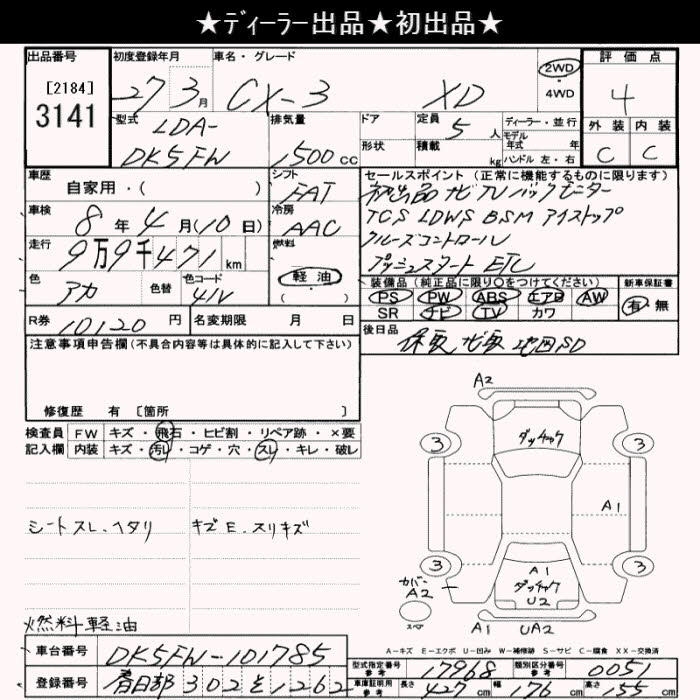 ★ディーラー出品★初出品★
出品番号 初度登録年月 車名・グレード 評価点
[2184]
3141
27年 3月 CX-3 XD 2WD・4WD 4
型式 LDA-DK5FW 排気量 1500cc ドア 定員 5人 ディーラー・並行
形状 積載 kg モデル年式 年 ハンドル 左・右
外装 内装
C C
車歴 自家用・( ) シフト FAT
セールスポイント (正常に機能するものに限ります)
初出品 ナビ TV バックモニター
TCS LDWS BSM アイストップ
クルーズコントロール
プッシュスタート ETC
車検 8年4月(10日) 冷房 AAC
走行 9万9千471 km 燃料 軽油・( )
色 アカ 色替 色コード 41V
装備品 (純正品に限り○をつけてください) 新車保証書
PS PW ABS エアB AW 有・無
SR ナビ TV カワ
R券 10120円 名変期限 月 日
後日品 保取 ナビ取 地図SD
注意事項申告欄(不具合内容等は具体的に記入して下さい)
修復歴 有 [箇所 ]
検査員 FW キズ・飛石・ヒビ割・リペア跡・×要
記入欄 内装 キズ・汚レ・コゲ・穴・スレ・キレ・破レ
シートスレ.ヘタリ キズE.スリキズ
燃料軽油
A2
3 ダッチャク 3
A1
3 A1 3
ダッチャク
U2
カバー
A2
スペア
A1 UA2
A-キズ E-エクボ U-凹み W-補修跡 S-サビ C-腐食 XX-交換済
車台番号 DK5FW-101785
登録番号 春日部 302 そ 1262
型式指定番号 参考 17968 類別区分番号 参考 0051
車庫証明用 参考 長さ 427cm 幅 176cm 高さ 155cm